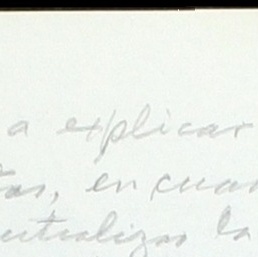 a explicar
tas, en cuan
eutralizar la